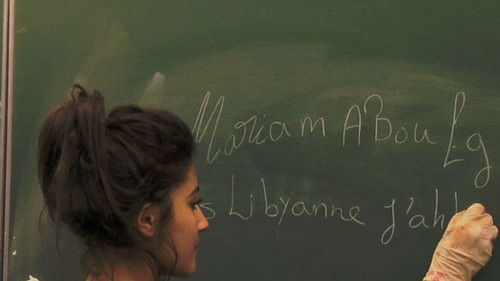 Mariam A'Bou Lg
s Libyanne j'ah